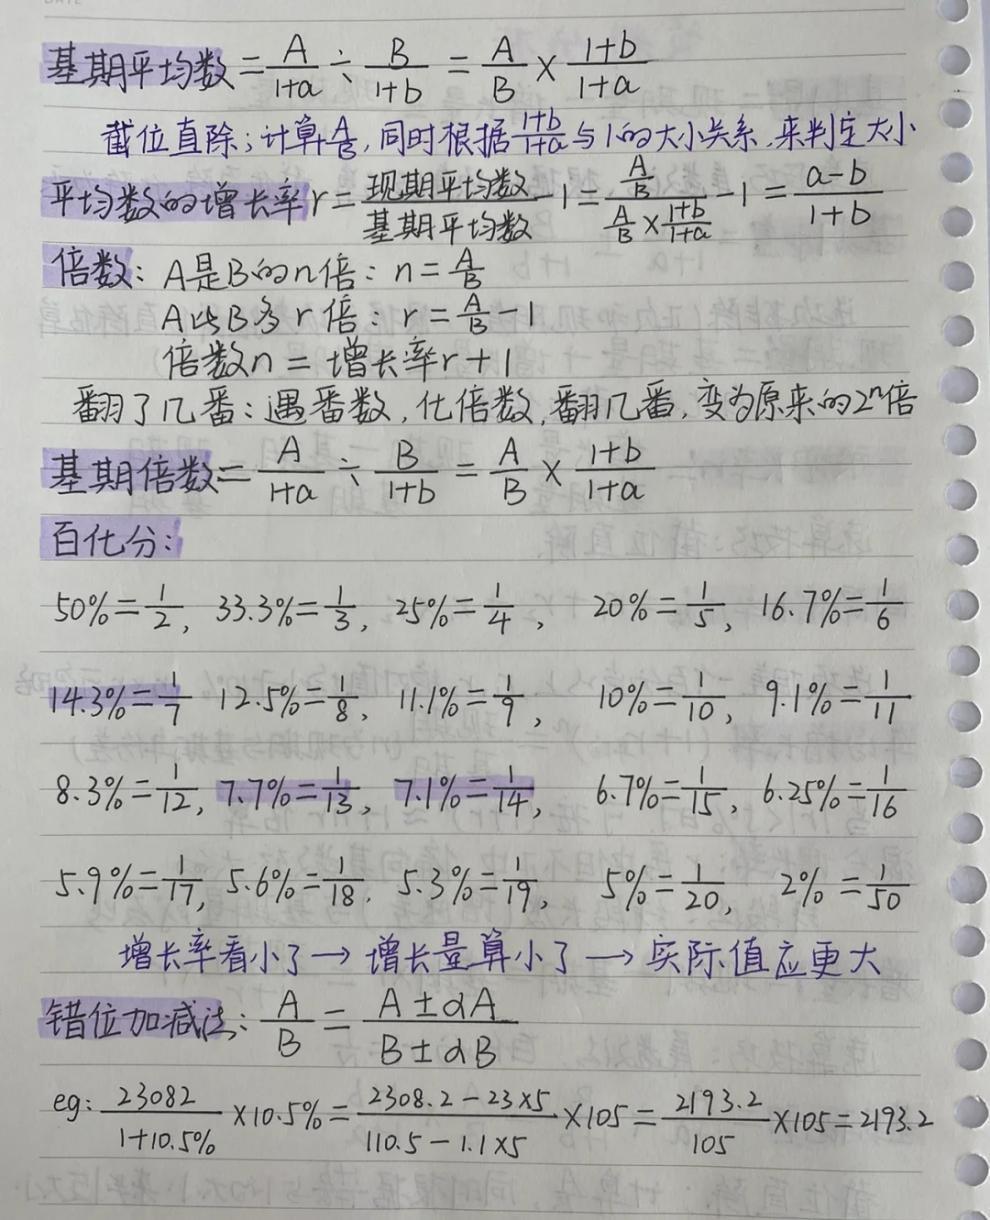 基期平均数 = A/(1+a) ÷ B/(1+b) = A/B × (1+b)/(1+a)
截位直除；计算A/B，同时根据(1+b)/(1+a)与1的大小关系，来判定大小
平均数的增长率r = 现期平均数/基期平均数 - 1 = (A/B)/(A/B × (1+b)/(1+a)) - 1 = (a-b)/(1+b)
倍数：A是B的n倍：n = A/B
A比B多r倍：r = A/B - 1
倍数n = 增长率r + 1
翻了几番：遇番数，化倍数，翻几番，变为原来的2ⁿ倍
基期倍数 = A/(1+a) ÷ B/(1+b) = A/B × (1+b)/(1+a)
百化分：
50% = 1/2, 33.3% = 1/3, 25% = 1/4, 20% = 1/5, 16.7% = 1/6
14.3% = 1/7 12.5% = 1/8, 11.1% = 1/9, 10% = 1/10, 9.1% = 1/11
8.3% = 1/12, 7.7% = 1/13, 7.1% = 1/14, 6.7% = 1/15, 6.25% = 1/16
5.9% = 1/17, 5.6% = 1/18. 5.3% = 1/19, 5% = 1/20, 2% = 1/50
增长率看小了 → 增长量算小了 → 实际值应更大
错位加减法：A/B = (A±αA)/(B±αB)
eg: 23082/(1+10.5%) ×10.5% = (2308.2-23×5)/(110.5-1.1×5) ×105 = 2193.2/105 ×105 = 2193.2